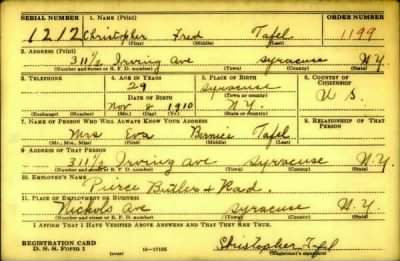 SERIAL NUMBER 1. NAME (Print) ORDER NUMBER
1212 Christopher Fred Tafel 1199
(First) (Middle) (Last)
2. ADDRESS (Print)
311½ Irving Ave Syracuse N.Y.
(Number and street or R. F. D. number) (Town) (County) (State)
3. TELEPHONE 4. AGE IN YEARS 5. PLACE OF BIRTH 6. COUNTRY OF CITIZENSHIP
29 Syracuse
(Town or county)
DATE OF BIRTH
Nov 8 1910 N.Y. U S.
(Exchange) (Number) (Mo.) (Day) (Yr.) (State or country)
7. NAME OF PERSON WHO WILL ALWAYS KNOW YOUR ADDRESS 8. RELATIONSHIP OF THAT PERSON
Mrs Eva Bernice Tafel
(Mr., Mrs., Miss) (First) (Middle) (Last)
9. ADDRESS OF THAT PERSON
311½ Irving Ave Syracuse N.Y.
(Number and street or R. F. D. number) (Town) (County) (State)
10. EMPLOYER'S NAME
Pierce Butler +
11. PLACE OF EMPLOYMENT OR BUSINESS
Nichols Ave Syracuse N.Y.
(Number and street or R. F. D. number) (Town) (County) (State)
I AFFIRM THAT I HAVE VERIFIED ABOVE ANSWERS AND THAT THEY ARE TRUE.
REGISTRATION CARD
D. S. S. Form 1 (over) 16—17105 Christopher Tafel
(Registrant's signature)